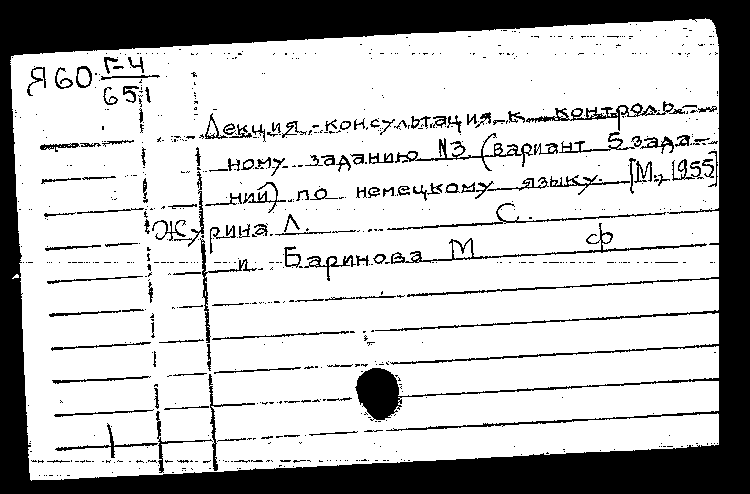 Я60 Г-4
651
Лекция-консультация к контроль-
ному заданию №3 (вариант 5 зада-
ний) по немецкому языку. [М., 1955]
Журина Л. С.
и Баринова М Ф